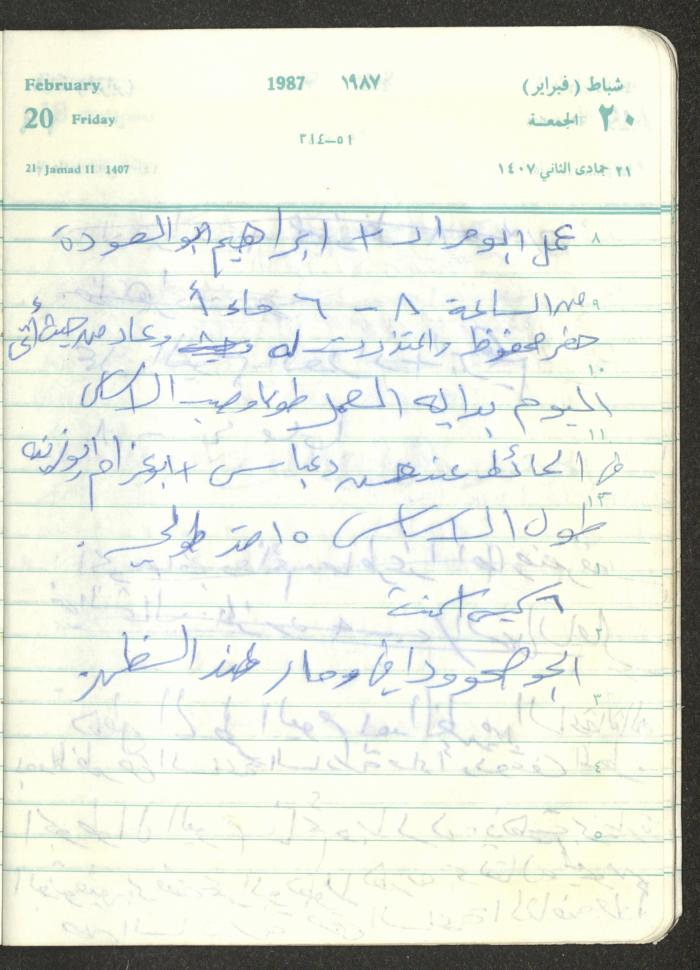 February 1987 ١٩٨٧ شباط (فبراير)
20 Friday ٢٠ الجمعة
٥١-٣١٤
21 Jamad II 1407 ٢١ جمادى الثاني ١٤٠٧
٨ عمل ابو مراد + ابراهيم ابو العودة
٩ من الساعة ٨ - ٦ مساءً
حضر محفوظ واعتذرت له وعاد من حيث أتى
١٠
اليوم بداية العمل طوبار وصب الاساس
١١
في الحائط عند عباس + ابو عزام ابو زينه
١٢
طول الاساس ١٥ متر طولي
١
٦ كيس اسمنت
٢
الجو صحو ودافي وحار عند الظهر.
٣
٤
٥